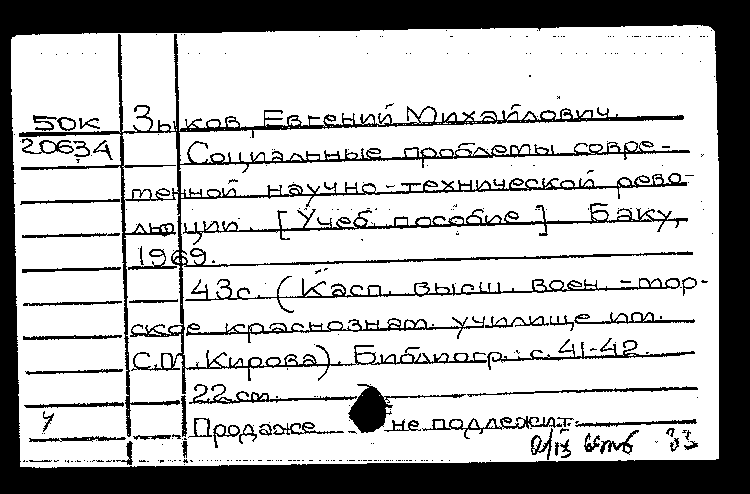 50К Зыков, Евгений Михайлович.
20634 Социальные проблемы совре-
менной научно-технической рево-
люции. [Учеб. пособие] Баку,
1969.
43с. (Касп. высш. воен.-мор-
ское краснознам. училище им.
С.М. Кирова). Библиогр.: с. 41-42.
22 см.
Продаже не подлежит.